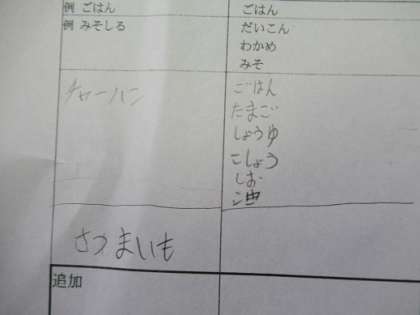 例 ごはん ごはん
例 みそしる だいこん
わかめ
みそ
チャーハン ごはん
たまご
しょうゆ
こしょう
しお
油
さつまいも
追加